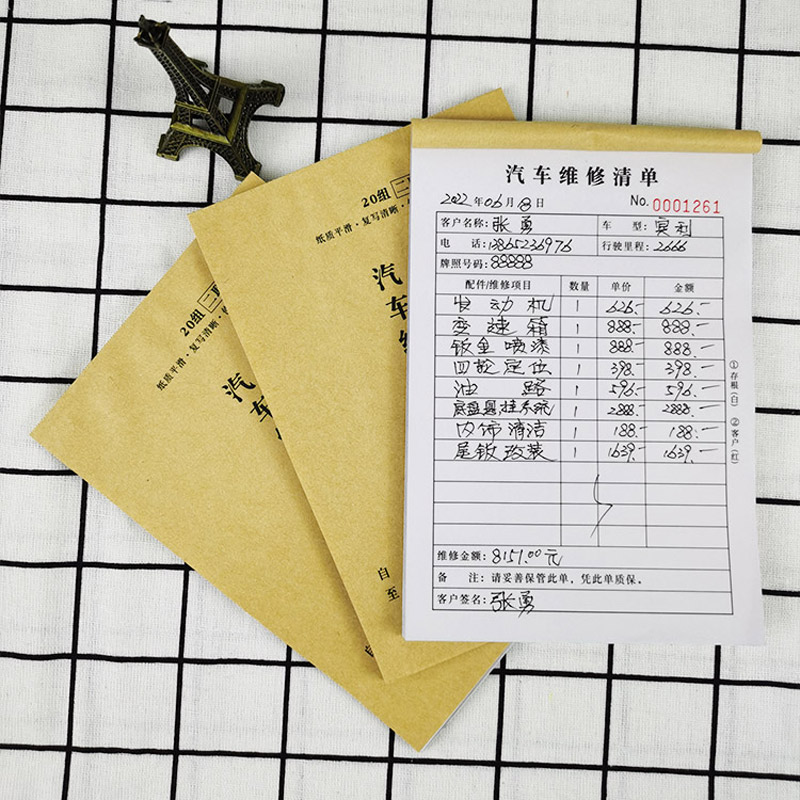 汽车维修清单
2022年06月18日 No. 0001261
客户名称：张勇 车 型：宾利
电 话：13865236976 行驶里程：2666
牌照号码：88888
配件/维修项目 数量 单价 金额
发动机 1 626.- 626.-
变速箱 1 888.- 888.-
钣金喷漆 1 888.- 888.-
四轮定位 1 398.- 398.-
油路 1 596.- 596.-
底盘悬挂系统 1 2888.- 2888.-
内饰清洁 1 188.- 188.-
尾钣改装 1 1639.- 1639.-
维修金额：8151.00元
备 注：请妥善保管此单，凭此单质保。
客户签名：张勇
①存根（白） ②客户（红）
20组
纸质平滑·复写清晰·
汽车
自
至
20组
纸质平滑·复写清晰·
汽车